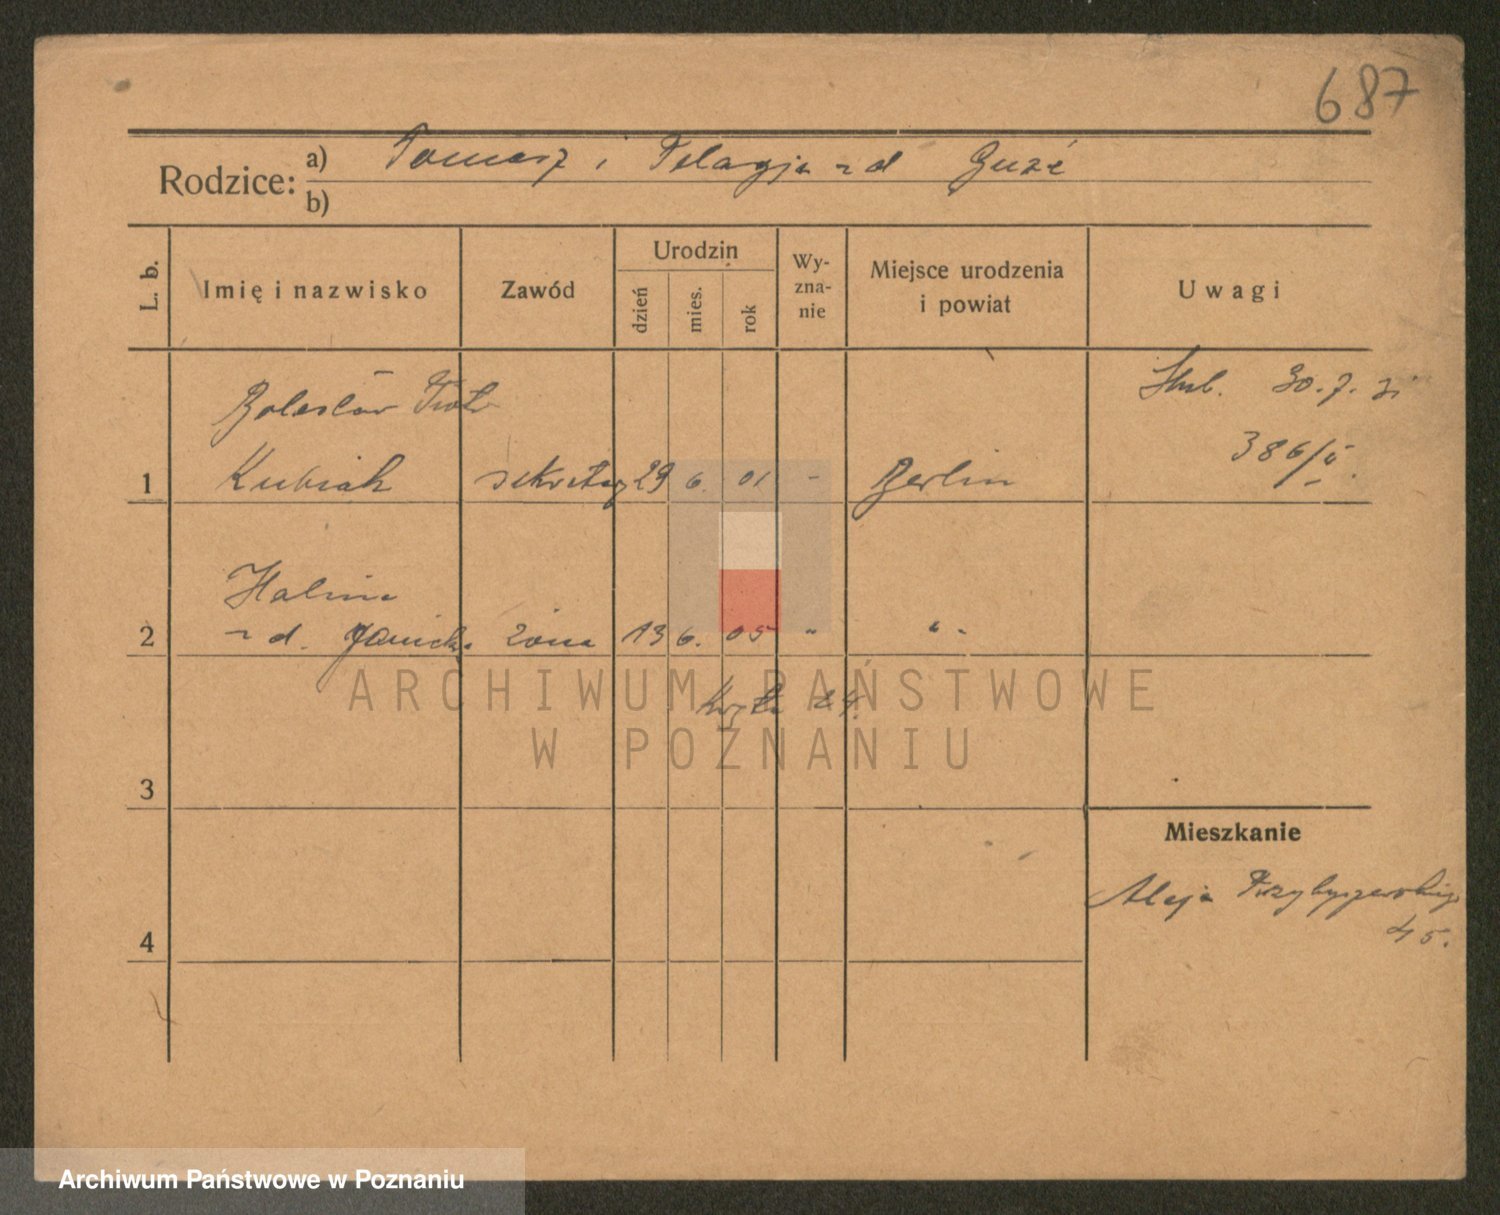 687
Rodzice: a) Tomasz i Pelagja z d Guzé
b)
L. b. Imię i nazwisko Zawód Urodzin dzień mies. rok Wy-zna-nie Miejsce urodzenia i powiat Uwagi
Bolesław Piotr
Kubiak
1 sekretarz 29 6. 01 - Berlin
ślub. 30.7.31
386/
Halina
2 z d. Janicka żona 13 6. 05 " " -
ARCHIWUM PAŃSTWOWE
W POZNANIU
24.
3
Mieszkanie
Aleja Przybyszewskiego
45.
4
Archiwum Państwowe w Poznaniu